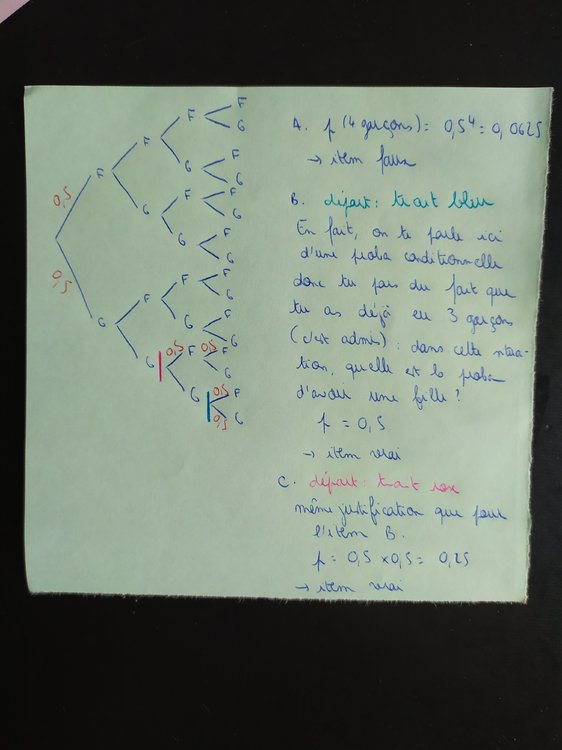 0,5
0,5
F
G
F
G
F
G
F
G
F
G
F
G
F
G
F
G
F
G
F
G
F
G
F
G
F
G
F
G
0,5
0,5
0,5
0,5
A. p(4 garçons) = 0,5⁴ = 0,0625
→ item faux
B. départ : trait bleu
En fait, on te parle ici
d'une proba conditionnelle
donc tu pars du fait que
tu as déjà eu 3 garçons
(c'est admis) : dans cette situa-
tion, quelle est la proba
d'avoir une fille ?
p = 0,5
→ item vrai
C. départ : trait rose
même justification que pour
l'item B.
p = 0,5 × 0,5 = 0,25
→ item vrai